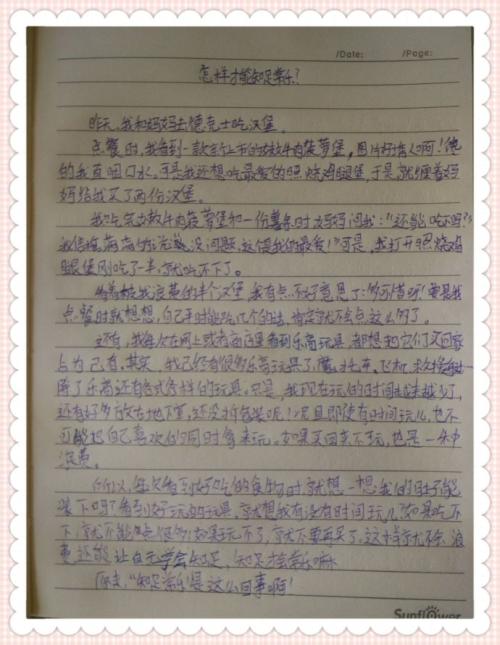 /Date: /Page:
怎样才能知足常乐?
昨天,我和妈妈去德克士吃汉堡。
点餐时,我看到一款新上市的嫩牛肉菠萝堡,图片好诱人啊!馋
的我直咽口水,可是我还想吃最爱的照烧鸡腿堡,于是,就缠着妈
妈给我买了两份汉堡。
我吃完嫩牛肉菠萝堡和一份薯条时妈妈问我:“还能吃吗?”
我信心满满的说没问题,这是我的最爱!”可是,我打开照烧鸡
腿堡刚吃了一半,就吃不下了。
看着被我浪费的半个汉堡,我有点不好意思了:多可惜呀!要是我
点餐时就想想,自己平时能吃几个的话,肯定就不会点这么多了。
还有,我每次在网上或者商店里看到乐高玩具,都想把它们买回家
占为己有。其实,我已经有很多乐高玩具了,火车、飞机、
除了乐高还有各式各样的玩具。只是,我现在玩的时间越来越少了,
还有好多放在地下室,还没拆包装呢!况且即使有时间玩儿,也不
可能把自己喜欢的同时拿来玩。如果买回来不玩,也是一种
浪费。
所以,每次看到好吃的食物时,就想一想我的肚子能
装下吗?看到好玩的玩具,就想我有没有时间玩儿?如果吃不
下,就不能点很多;如果玩不了,就不要再买了。这样就不会浪
费还能让自己学会知足,知足才能常乐嘛。
原来,“知足常乐”是这么回事啊!
Sunflower